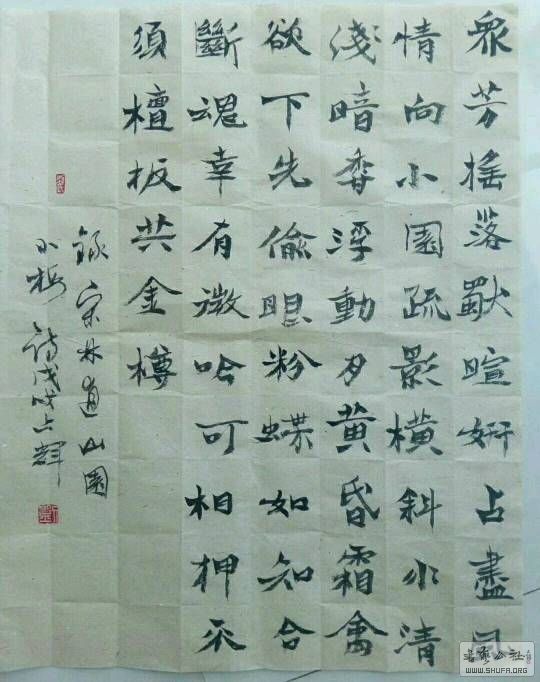 眾芳搖落獻暄妍占盡風
情向小園疏影橫斜水清
淺暗香浮動月黃昏霜禽
欲下先偷眼粉蝶如知合
斷魂幸有微吟可相狎不
須檀板共金樽
錄宋林逋山園
小梅詩戊戌占輝
書藝公社
WWW.SHUFA.ORG